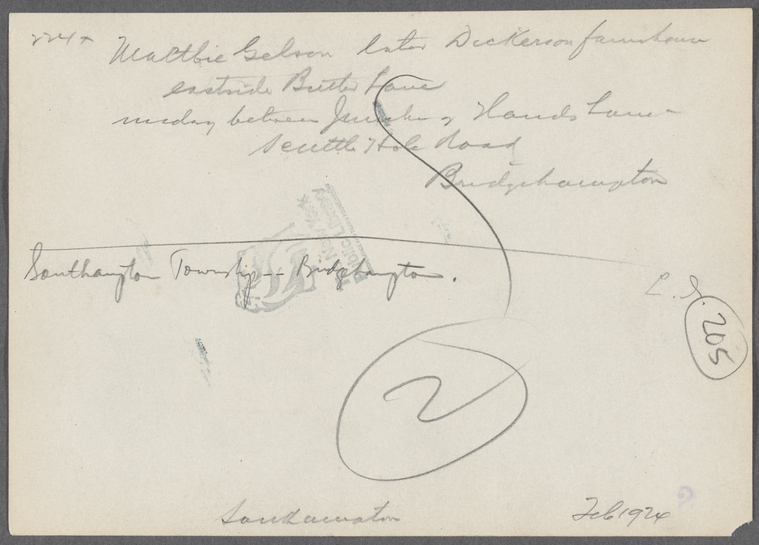 224x
Maltbie Gelson later Dickerson farmhouse
eastside Butter Lane
midway between Junction of Hands Lane -
Scuttle Hole Road
Bridgehampton
Southampton Township -- Bridgehampton.
L. I.
205
2
Southampton
Feb 1924